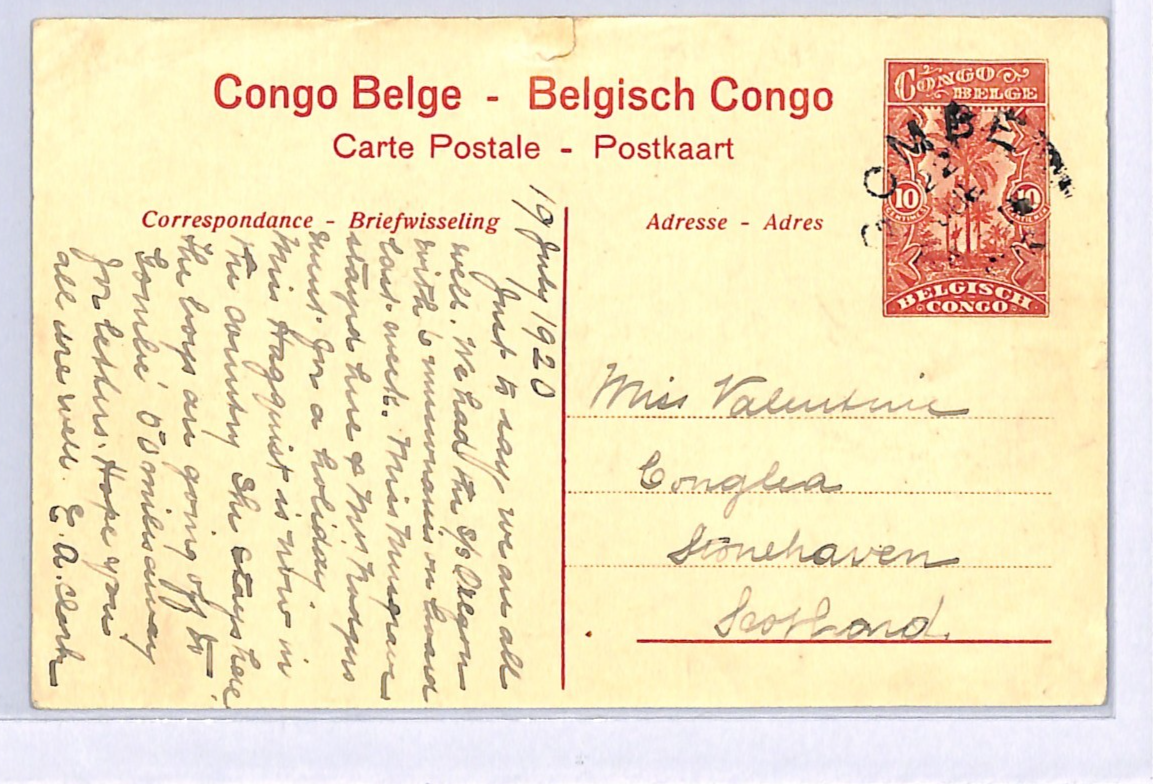 Congo Belge - Belgisch Congo
Carte Postale - Postkaart
Correspondance - Briefwisseling
Adresse - Adres
CONGO
BELGE
10
10
CENTIMES
CENTIMES
BELGISCH
CONGO
OMBE
22
19 July 1920
Just to say we are all
well. We had the S/S Oregon
with 6 missionaries on board
last week. Miss Musgrave
stayed here & Mrs Hodges
went for a holiday.
Miss Hagquist is now in
the country She stays here
the boys are going off to
Lombe 50 miles away
for letters. Hope you
all are well E. A. Clark
Miss Valentine
Stonehaven
Scotland